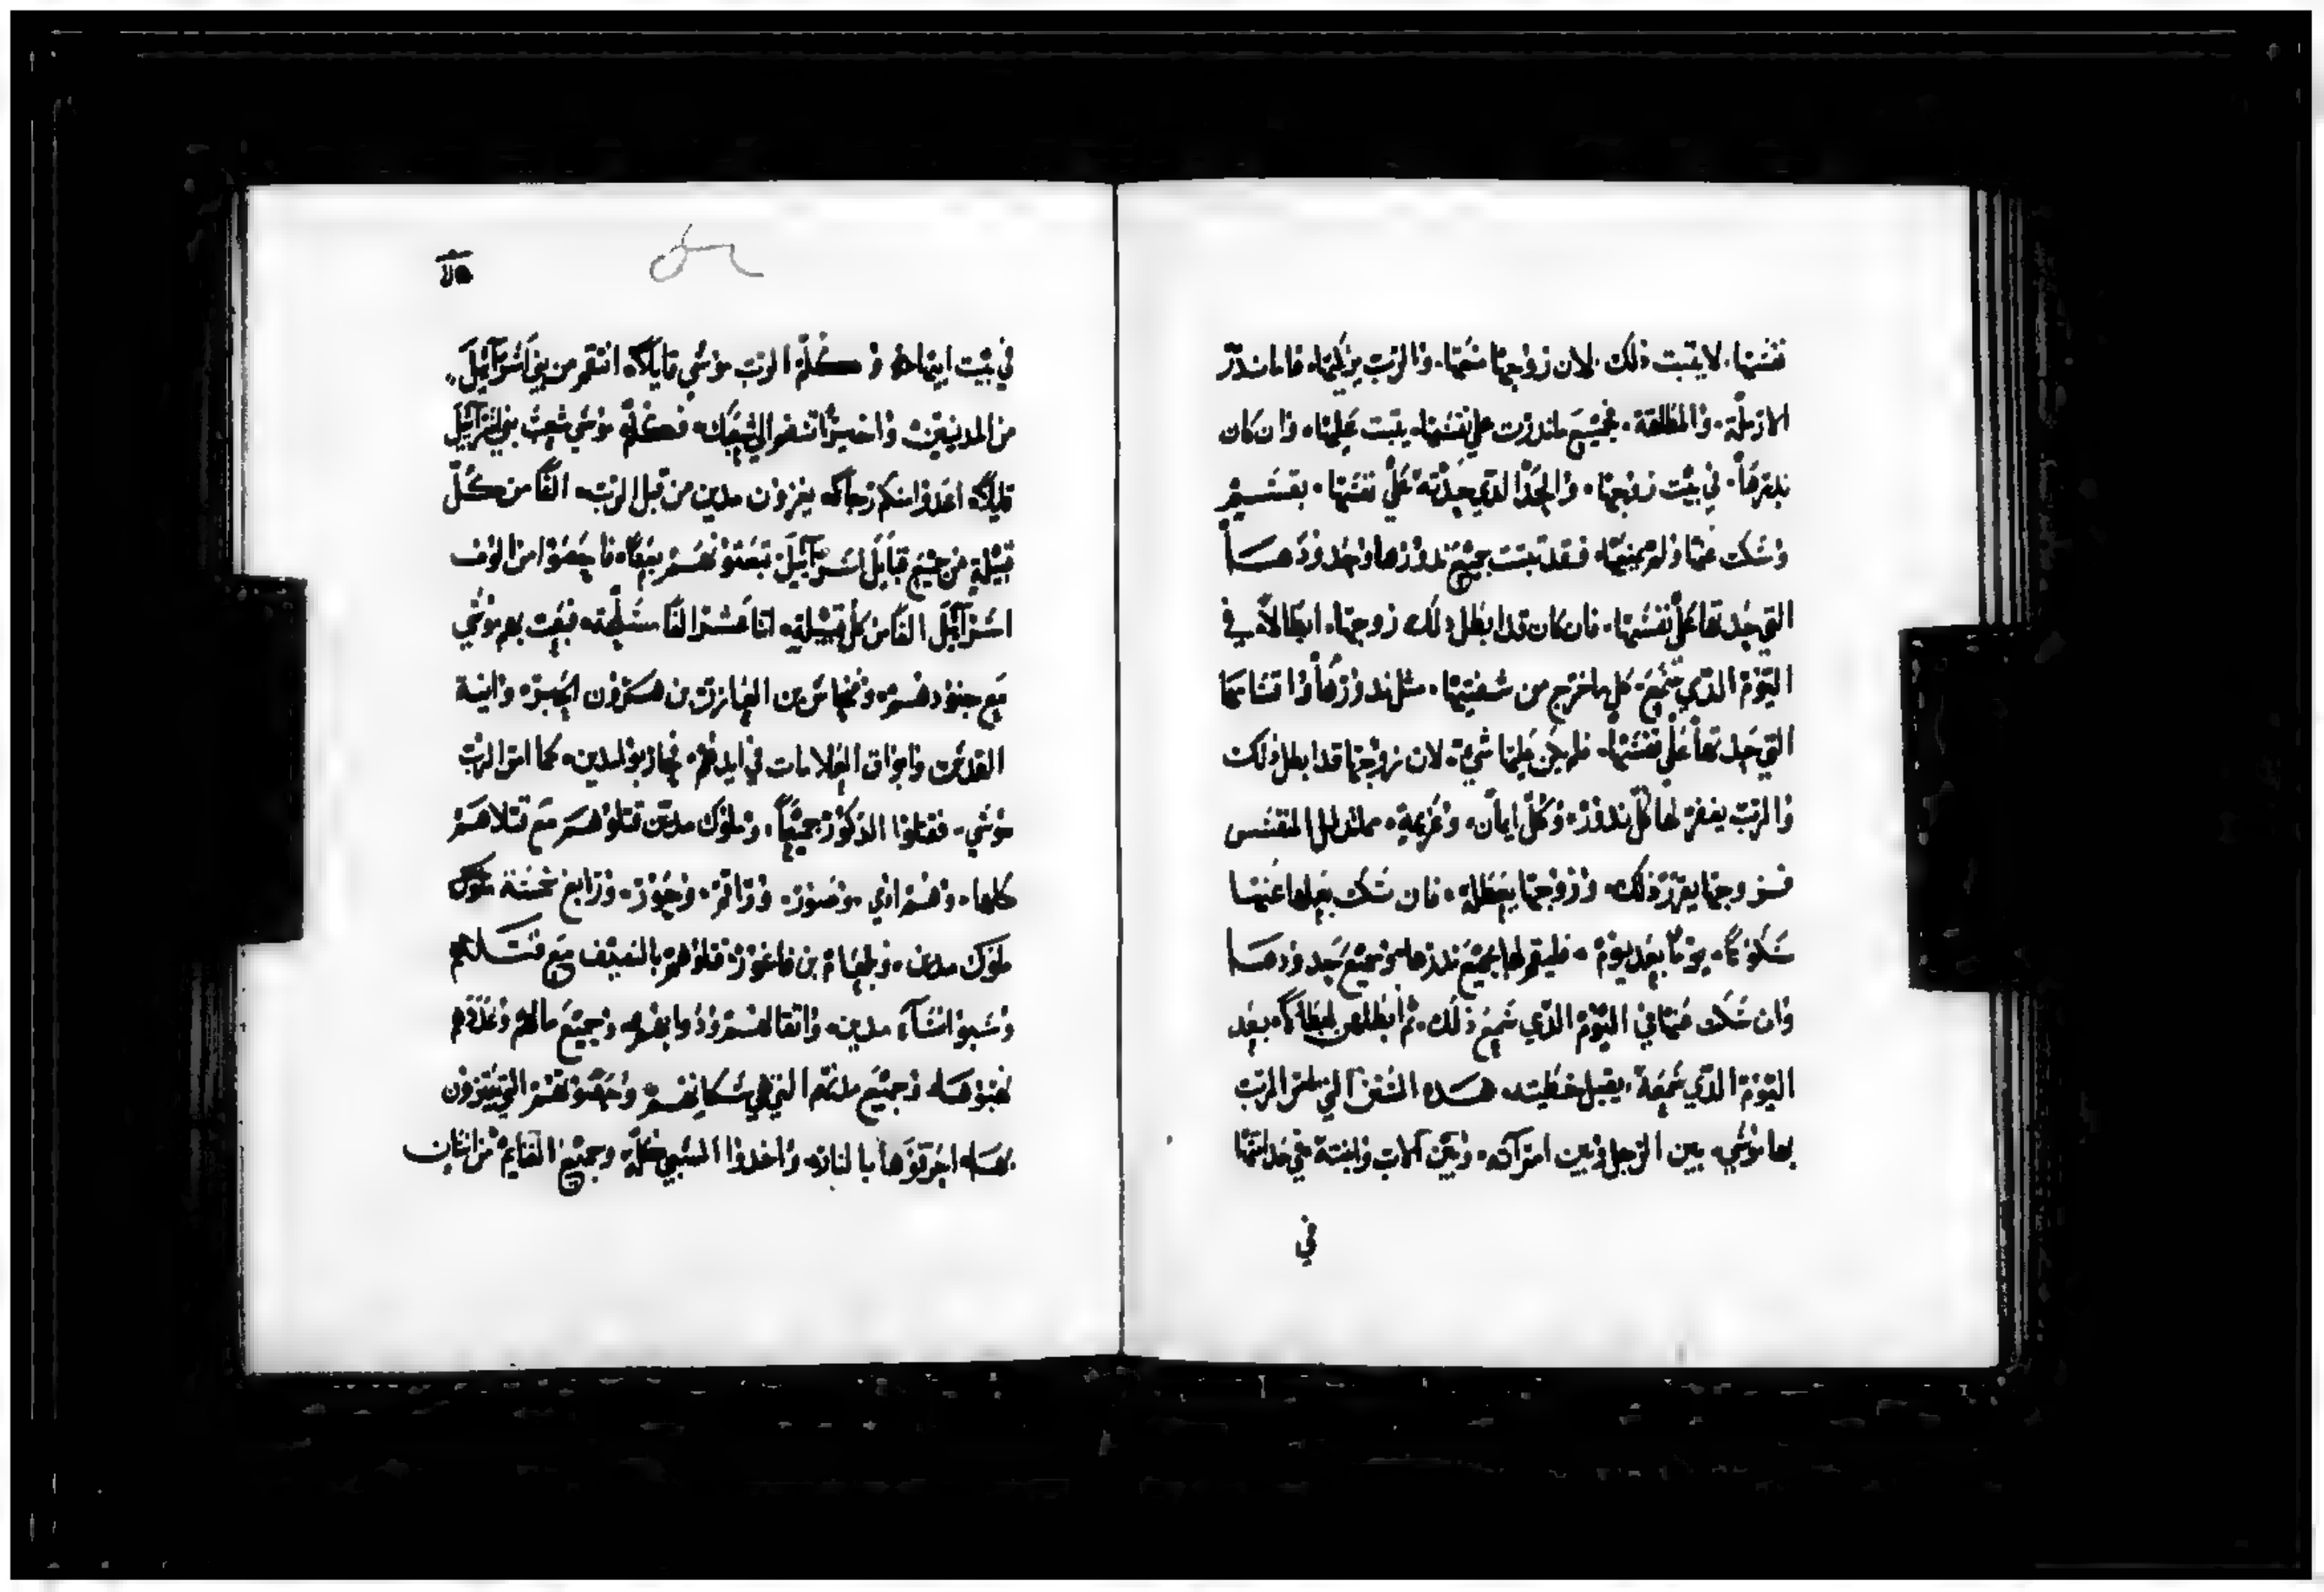 نفسها. لا يتبت ذلك. لان زوجها منعها. والرب يزكيها. فاما نذر
الارملة. والمطلقة. فجميع ما ندرت علي نفسها. يتبت عليها. وان كان
ندرها. في بيت زوجها. والحد الدي حدته علي نفسها. بقسم
وسكت عنها ولم يمنعها. فقد تبتت جميع ندورها وحدودها
التي حدتها علي نفسها. فان كان قد ابطل دلك زوجها. ابطالاً في
اليوم الدي سمع. كل ما خرج من شفتيها. مثل ندورها واقسامها
التي حدتها علي نفسها. فلم يكن عليها شي. لان زوجها قد ابطل دلك
والرب يغفر لها كل ندور. وكل ايمان. وعزيمة. النفس
فزوجها يقرر دلك. وزوجها يبطله. فان سكت بعلها عنها
سكوتاً. يوماً بعد يوم. فليقم لها جميع ندرها وجميع حدودها
وان سكت عنها في اليوم الدي سمع دلك. تم ابطلهن ابطالاً. بعد
اليوم الدي سمعه. يقبل خطيته. هده السنن التي امر الرب
بها موسي. بين الرجل وبين امرآته. وبين الاب وابنته في حداتتها
في
في بيت ابيها. وكلم الرب موسي قايلاً. انتقم من بني اسرآييل
من المدينيين. واخيراً تنضم الي شعبك. فكلم موسي شعب بني اسرآييل
قايلاً. اعدوا منكم رجالاً. يغزون مدين من قبل الرب. الفاً من كل
قبيلة من جميع قبايل اسرآييل تبعتونهم معاً. فاحصوا من الوف
اسرآييل الفاً من كل قبيلة. اتنا عشر الفاً مسلحة. فبعت بهم موسي
مع جنودهم. وفنحاس بن العازر بن هرون الحبر. وانية
القدس وابواق العلامات في ايديهم. فحاربوا مدين. كما امر الرب
موسي. فقتلوا الدكور جميعاً. وملوك مدين قتلوهم مع قتلاهم
كلها. وهم اوي. وصور. وراقم. وحور. ورابع خمسة ملوك
ملوك مدين. وبلعام بن فاغور قتلوهم بالسيف مع قتلاهم
وسبوا نسآء مدين. واتقالهم ودوابهم. وجميع مالهم وعددهم
نهبوها. وجميع مدنهم التي هي سكانهم. وحصونهم التي يتزرون
بها. احرقوها بالنار. واخدوا السبي كله. وجميع الغنايم من انسان